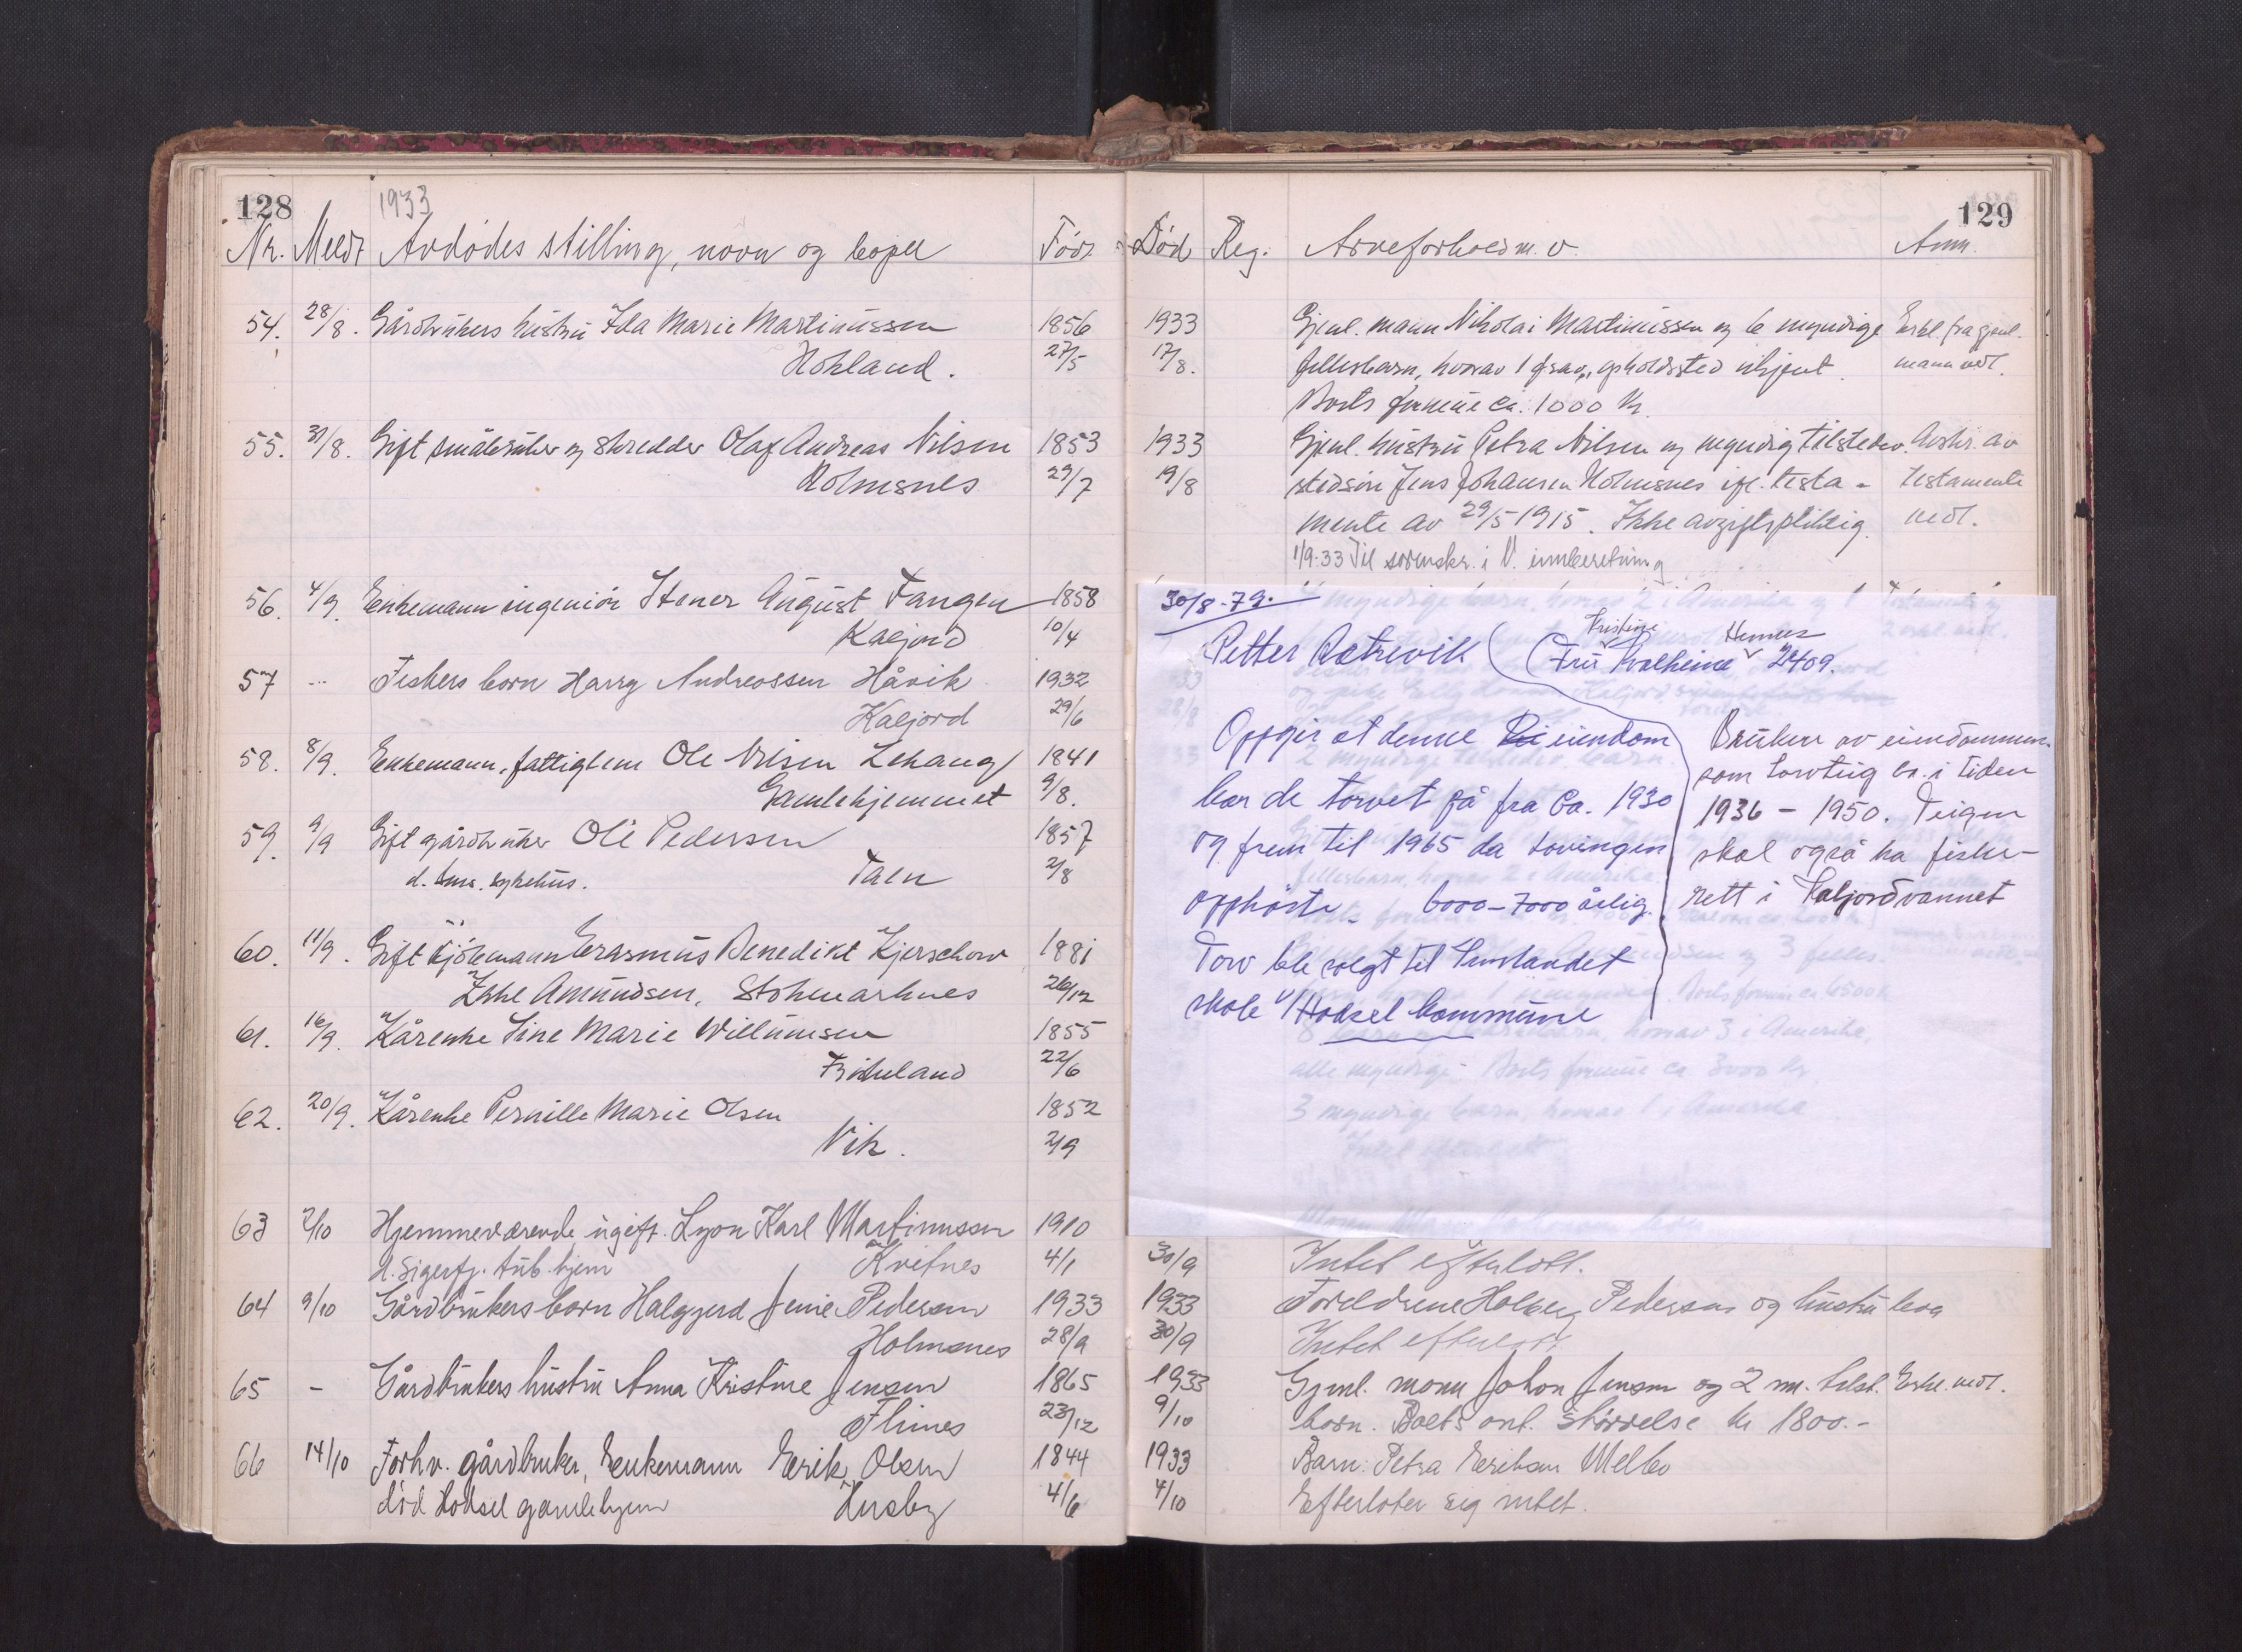 128
1933
Nr. Meldt Avdødes stilling, navn og bopel Föd
54. 28/8. Gårdbrukers hustru Ida Marie Martinussen 1856
Hokland. 27/5
55. 31/8. Gift småbruker og skredder Olaf Andreas Nilsen 1853
Holmsnes 29/7
56. 4/9. Enkemann ingeniör Stener August Fangen 1858
Kaljord 10/4
57 - Fiskers barn Harry Andreassen Håvik 1932
Kaljord 29/6
58. 8/9. Enkemann, fattiglem Ole Nilsen Lekang 1841
Gamlehjemmet 9/8.
59. 9/9 Gift gårdbruker Ole Pedersen 1857
d. sykehus. Taen 2/8
60. 11/9. Gift Erasmus Benedikt Kjerschow 1881
Zahl Amundsen, Stokmarknes 26/12
61. 16/9. Kårenke Sine Marie Willumsen 1855
Friskeland 22/6
62. 20/9. Kårenke Pernille Marie Olsen 1852
Vik. 2/9
63 2/10 Hjemmeværende ugift. Lyon Karl Martinussen 1910
d. Sigerfj. tub. hjem Kvitnes 4/1
64 9/10 Gårdbrukers barn Halgjerd Jenie Pedersen 1933
Holmsnes 28/9
65 - Gårdbrukers hustru Anna Kristine Jensen 1865
Flines 23/12
66 14/10 Forhv. gårdbruker, Enkemann Erik Olsen 1844
död Hadsel gamlehjem Husby 4/6
129
Död Reg. Arveforhold m. v. Anm.
1933 Gjenl. mann Nikolai Martinussen og 6 myndige Erkl. fra gjenl.
17/8. fellesbarn, hvorav 1 frav., opholdssted ukjent. mann vedl.
Boets formue ca. 1000 kr.
1933 Gjenl. hustru Petra Nilsen og myndig tilstedev. Avskr. av
19/8 stedsön Jens Johansen Holmsnes ifl. testa- testamente
mente av 29/5 1915. Ikke avgiftspliktig. vedl.
1/9-33 Til sorenskr. i V. innberetning
30/8-79.
Petter Ræktrevik (Fru Kristine Kvalheim Hennes 2409.
Oppgir at denne eiendom
har de torvet på fra ca. 1930
og frem til 1965 da tovingen
opphörte. 6000-7000 årlig.
Torv ble solgt til
skole v/Hadsel kommune
Brukere av eiendommen
som torvteig ca. i tiden
1936 - 1950. Teigen
skal også ha fiske-
rett i Kaljordvannet
30/9 Intet efterlatt.
1933 Foreldrene Halvey Pedersen og hustru leva
30/9 Intet efterlatt
1933 Gjenl. mann Johan Jensen og 2 mn. tilst. Erkl. vedl.
9/10 barn. Boets ant. störrelse kr 1800.-
1933 Barn: Petra Eriksen Melbo
4/10 Efterlater sig intet.